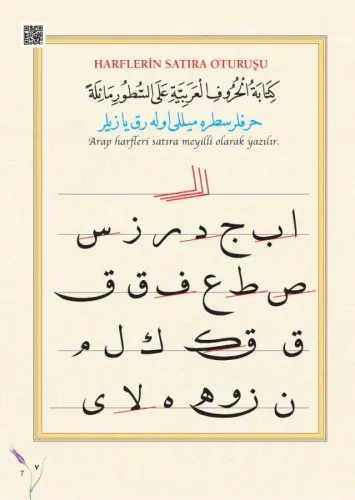 HARFLERİN SATIRA OTURUŞU
كِتَابَةُ الْحُرُوفِ الْعَرَبِيَّةِ عَلَى السُّطُورِ مَائِلَةً
حرفلر سطره میللی اوله رق یازیلر
Arap harfleri satıra meyilli olarak yazılır.
ا ب ج د ر ز س
ص ط ع ف ق ق
ق ک ك ل م
ن ز و ه ه لا ى
7 ٧